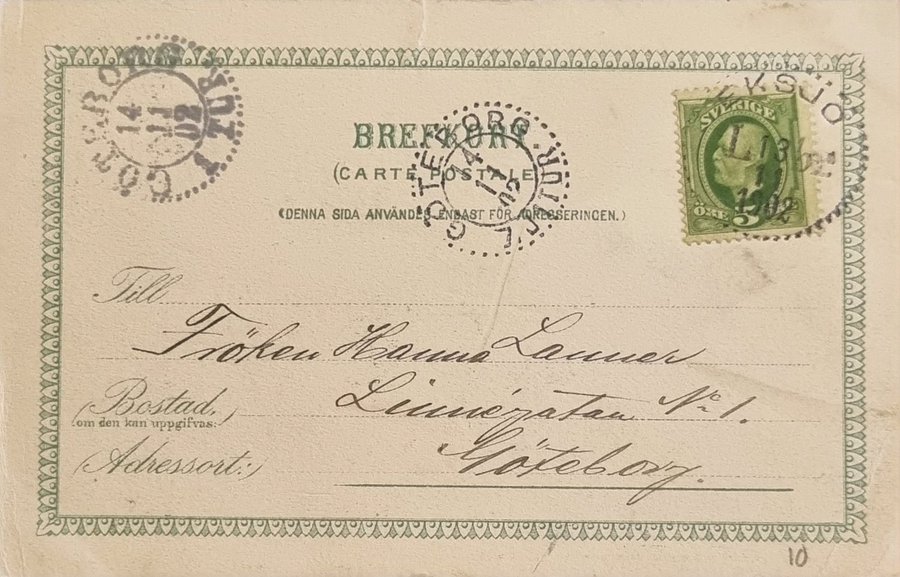 BREFKORT
(CARTE POSTALE)
(DENNA SIDA ANVÄNDES ENBAST FÖR ADRESSERINGEN.)
GÖTEBORG 1 TUR
14
11
02
GÖTEBORG 1 TUR
14
11
02
EKSJÖ
13
11
1902
SVERIGE
5
ÖRE
Till
Fröken Hanna Lanner
Bostad,
(om den kan uppgifvas:)
Linnégatan No 1.
(Adressort:)
Göteborg.
10